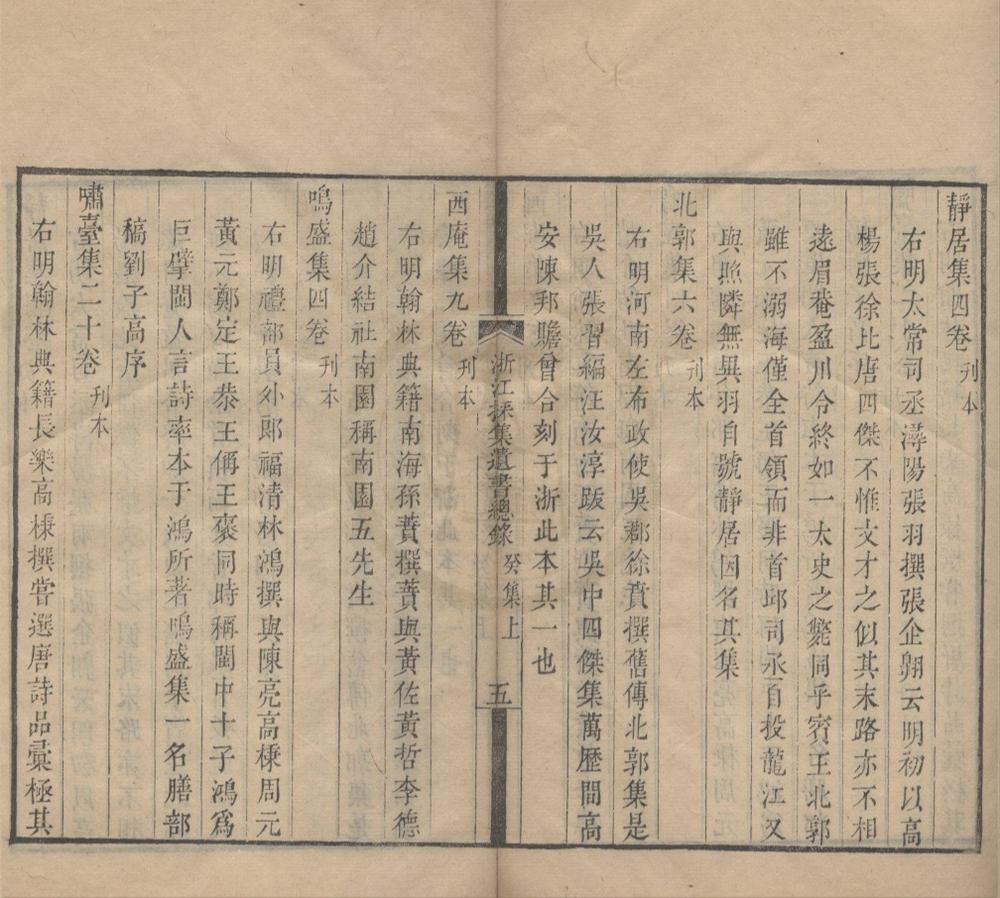 靜居集四卷 刊本
右明太常司丞潯陽張羽撰張企翱云明初以高
楊張徐比唐四傑不惟文才之似其末路亦不相
遠眉菴盈川令終如一太史之斃同乎賓王北郭
雖不溺海僅全首領而非首邱司丞自投龍江又
與照隣無異羽自號靜居因名其集
北郭集六卷 刊本
右明河南左布政使吳郡徐賁撰舊傳北郭集是
吳人張習編汪汝淳跋云吳中四傑集萬歷間高
安陳邦瞻曾合刻于浙此本其一也
浙江採集遺書總錄 癸集上 五
西庵集九卷 刊本
右明翰林典籍南海孫蕡撰蕡與黃佐黃哲李德
趙介結社南園稱南園五先生
鳴盛集四卷 刊本
右明禮部員外郎福清林鴻撰與陳亮高棅周元
黃元鄭定王恭王偁王褒同時稱閩中十子鴻爲
巨擘閩人言詩率本于鴻所著鳴盛集一名膳部
稿劉子高序
嘯臺集二十卷 刊本
右明翰林典籍長樂高棅撰嘗選唐詩品彙極其